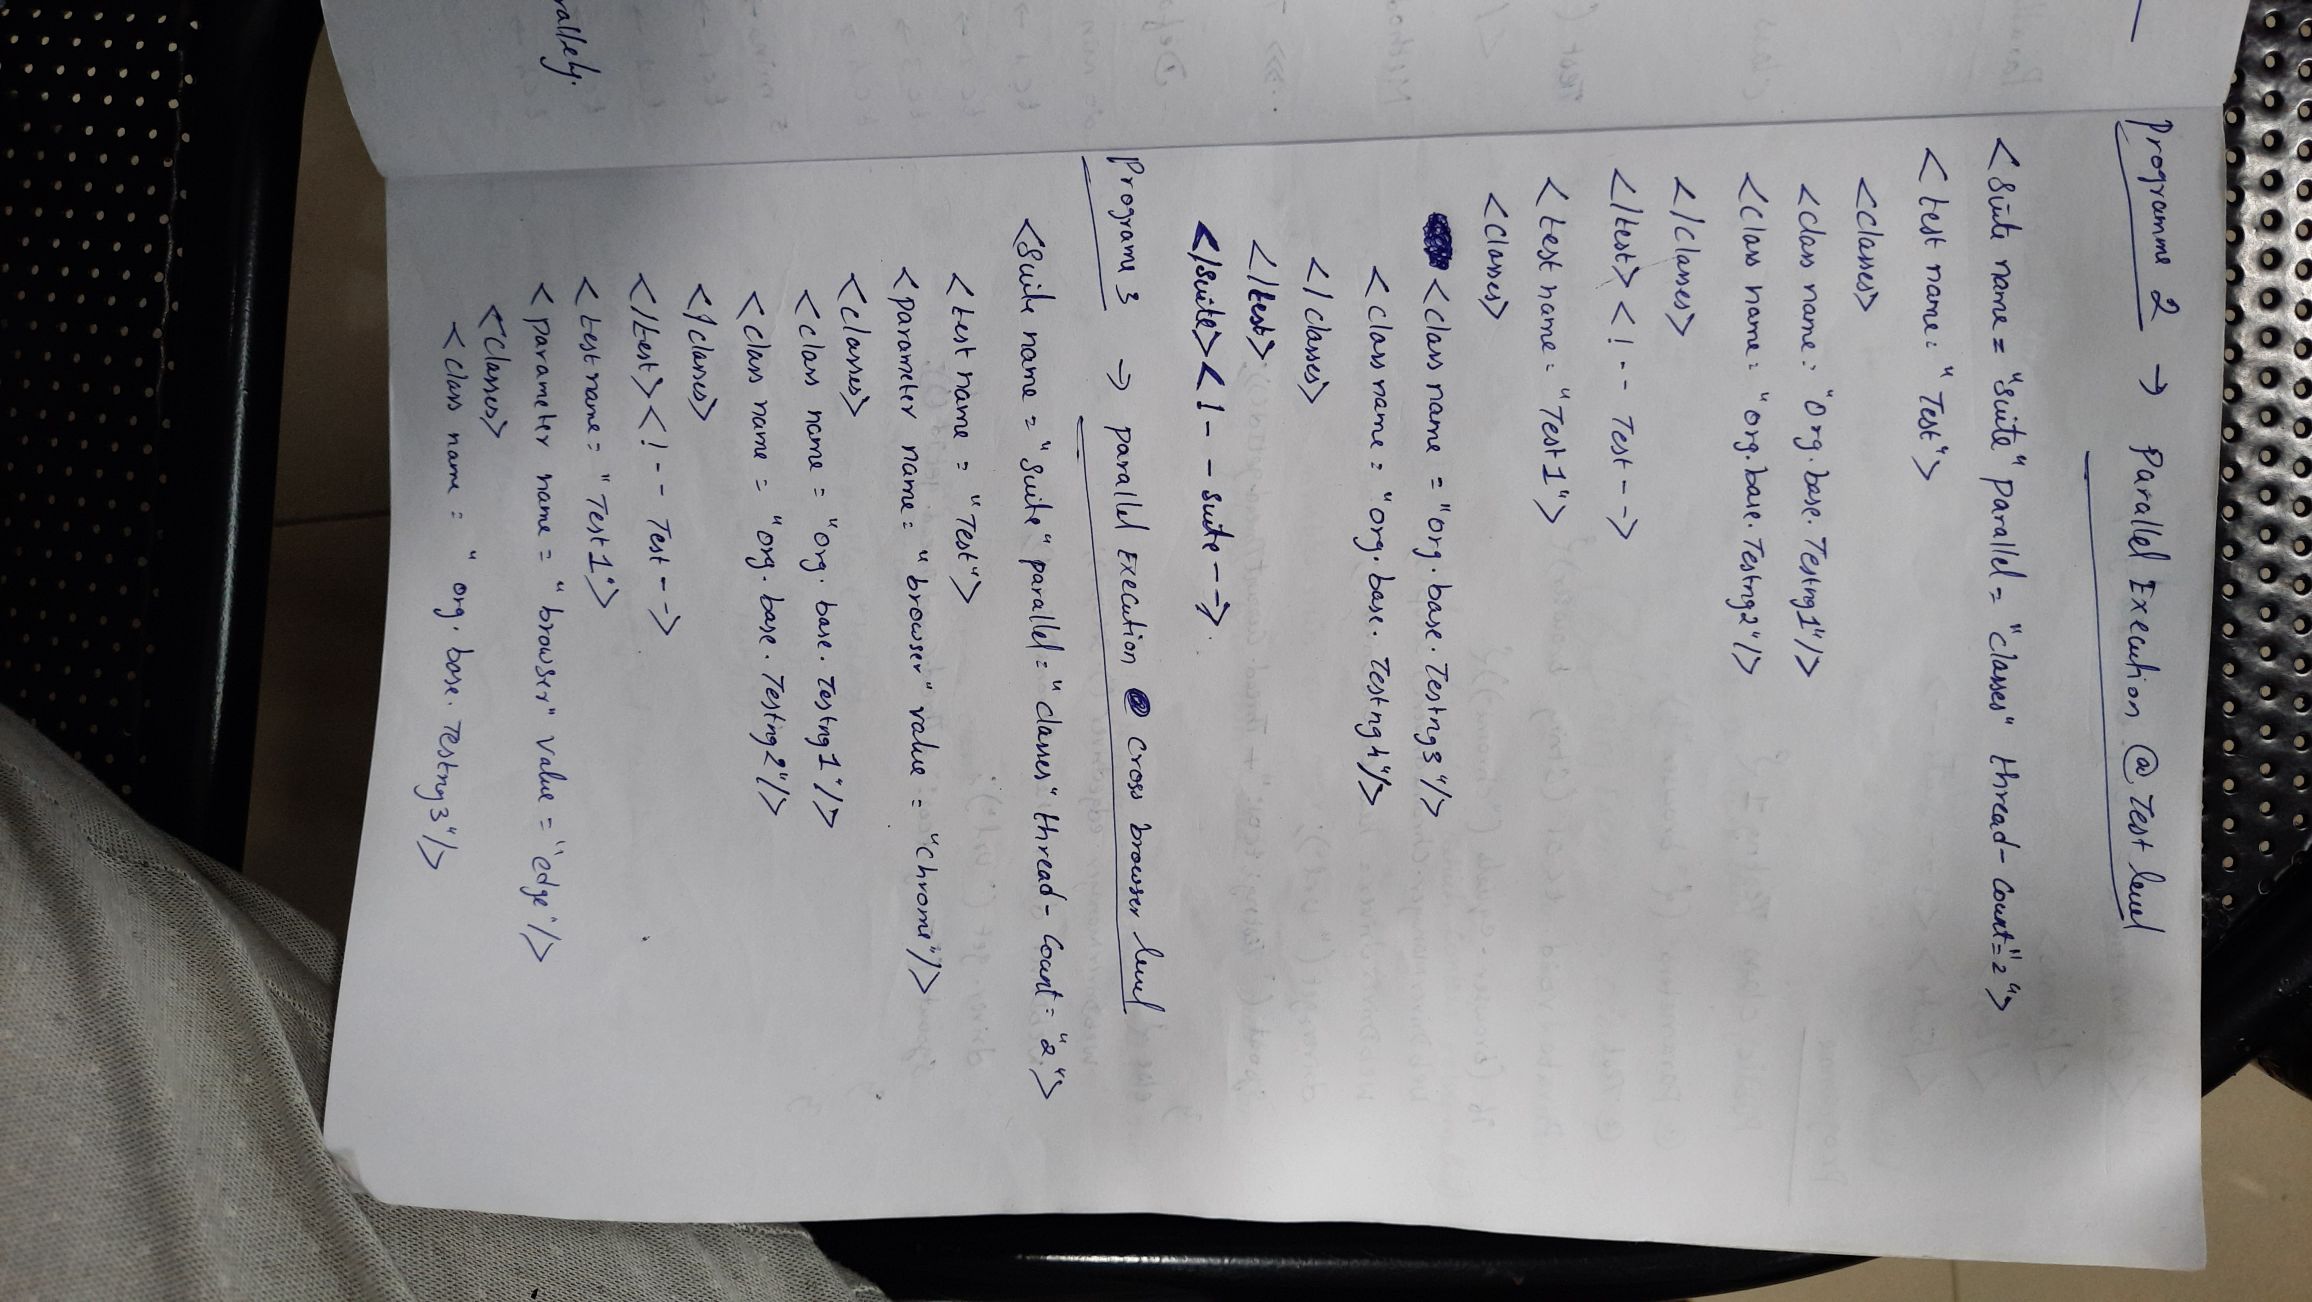 rallely.
Programme 2 → Parallel Execution @ Test level
<suite name = "suite" parallel = "classes" thread-count = "2">
<test name = "Test">
<classes>
<class name = "org.base.Testng1"/>
<class name = "org.base.Testng2"/>
</classes>
</test> <!-- Test -->
<test name = "Test1">
<classes>
<class name = "org.base.Testng3"/>
<class name = "org.base.Testng4"/>
</classes>
</test>
</suite> <!-- suite -->.
Programe 3 → parallel Execution @ cross browser level
<suite name = "suite" parallel = "classes" thread-count = "2">
<test name = "Test">
<parameter name = "browser" value = "chrome"/>
<classes>
<class name = "org.base.Testng1"/>
<class name = "org.base.Testng2"/>
</classes>
</test> <!-- Test -->
<test name = "Test1">
<parameter name = "browser" value = "edge"/>
<classes>
<class name = "org.base.Testng3"/>